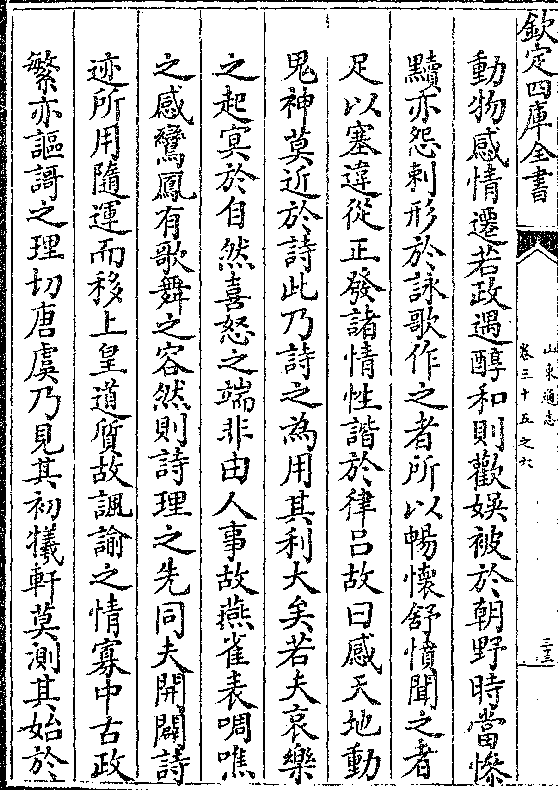 欽定四庫全書
山東通志
卷三十五之六
動物感情遷若政遇醇和則歡娱被於朝野時當慘
黷亦怨刺形於詠歌作之者所以暢懷舒憤聞之者
足以塞違從正發諸情性諧於律吕故曰感天地動
鬼神莫近於詩此乃詩之為用其利大矣若夫哀樂
之起冥於自然喜怒之端非由人事故燕雀表啁噍
之感鸞鳳有歌舞之容然則詩理之先同夫開闢詩
迹所用隨運而移上皇道質故諷諭之情寡中古政
繁亦謳謌之理切唐虞乃見其初犧軒莫測其始於